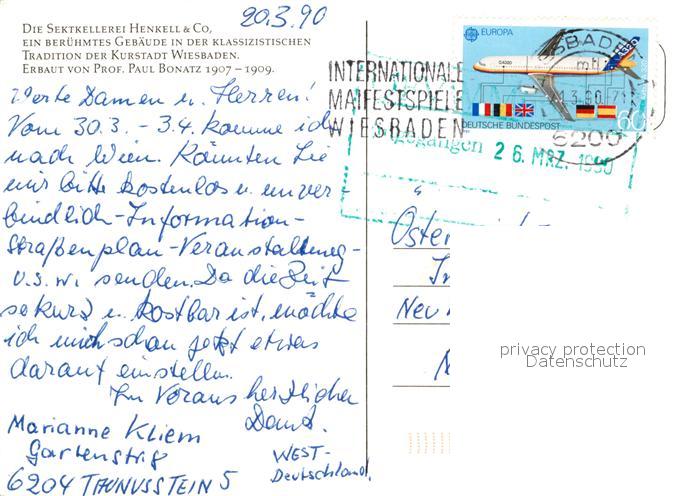 20.3.90
Die Sektkellerei Henkell & Co,
ein berühmtes Gebäude in der klassizistischen
Tradition der Kurstadt Wiesbaden.
Erbaut von Prof. Paul Bonatz 1907–1909.
Werte Damen u. Herren!
Vom 30.3. - 3.4. komme ich
nach Wien. Könnten Sie
mir bitte kostenlos u. unver-
bindlich-Information-
Straßenplan-Veranstaltung-
u.s.w. senden. Da die Zeit
so kurz u. kostbar ist, möchte
ich mich schon jetzt etwas
darauf einstellen.
Im Voraus herzlicher
Dank.
Marianne Kliem
Gartenstr 8
6204 TAUNUSSTEIN 5
WEST-
Deutschland
INTERNATIONALE
MAIFESTSPIELE
WIESBADEN
EUROPA
DEUTSCHE BUNDESPOST
60
6200
gegangen
26. MRZ. 1990
Öster
Neu
privacy protection
Datenschutz